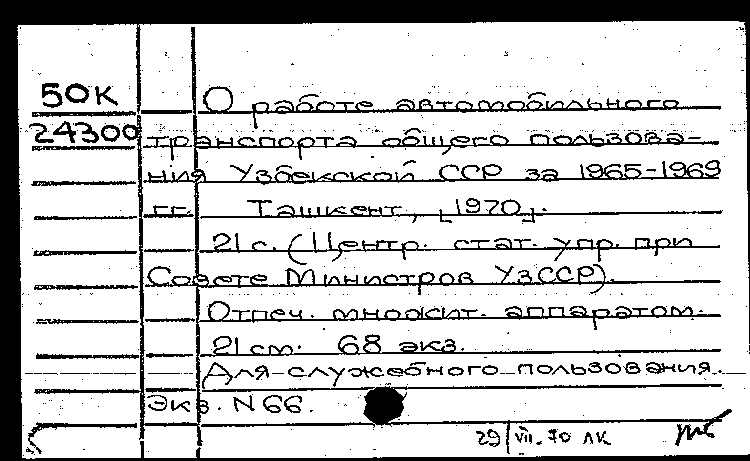 50К
О работе автомобильного
24300
транспорта общего пользова-
ния Узбекской ССР за 1965-1969
гг. Ташкент, [1970].
21 с. (Центр. стат. упр. при
Совете Министров УзССР).
Отпеч. множит. аппаратом.
21 см. 68 экз.
Для служебного пользования.
Экз. N 66.
29/VII-70 ЛК